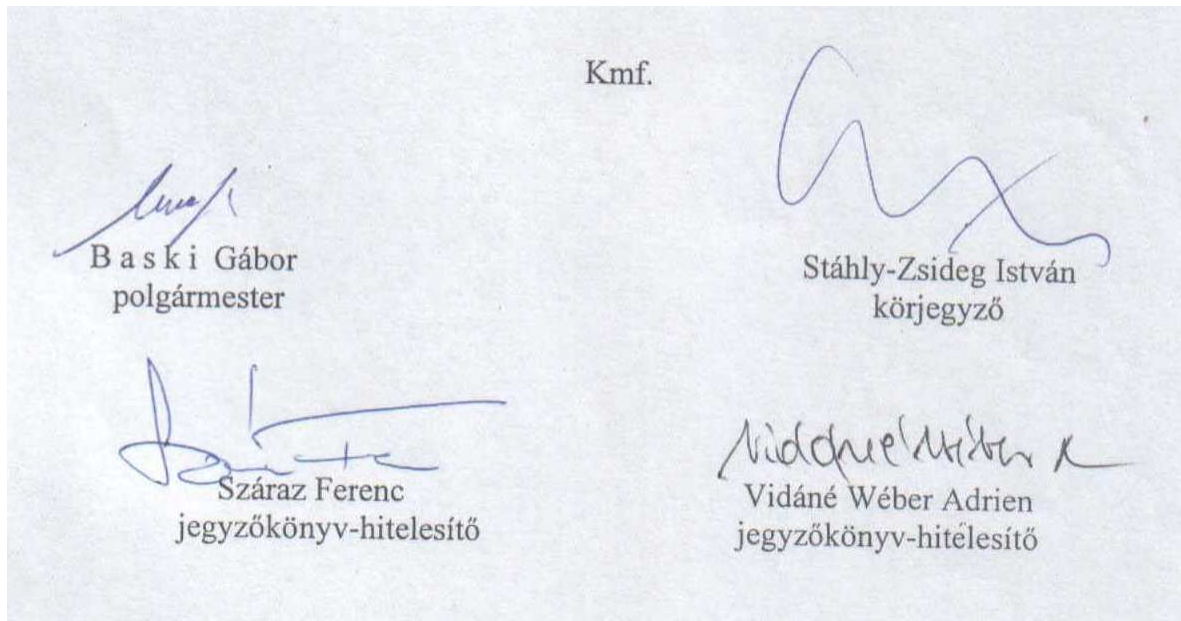 Kmf.
B a s k i Gábor
polgármester
Stáhly-Zsideg István
körjegyző
Száraz Ferenc
jegyzőkönyv-hitelesítő
Vidáné Wéber A
Vidáné Wéber Adrien
jegyzőkönyv-hitelesítő